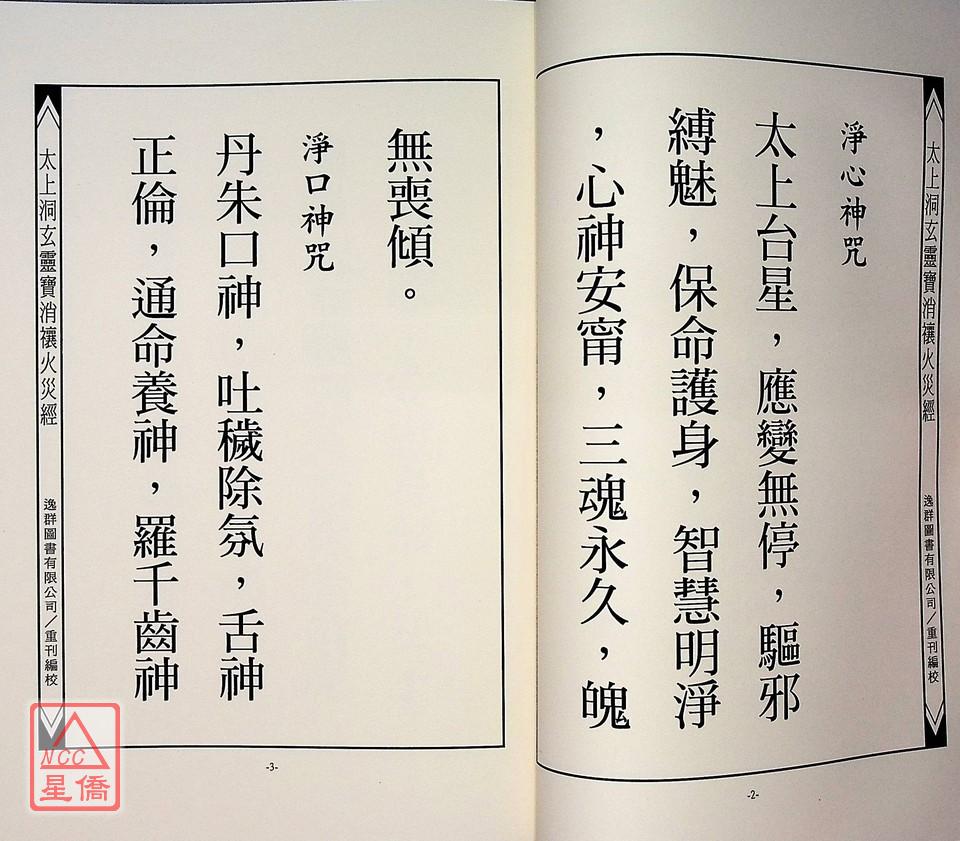 太上洞玄靈寶消禳火災經
逸群圖書有限公司／重刊編校
淨心神咒
太上台星，應變無停，驅邪
縛魅，保命護身，智慧明淨
，心神安甯，三魂永久，魄
-2-
無喪傾。
淨口神咒
丹朱口神，吐穢除氛，舌神
正倫，通命養神，羅千齒神
太上洞玄靈寶消禳火災經
逸群圖書有限公司／重刊編校
-3-
NCC
星僑